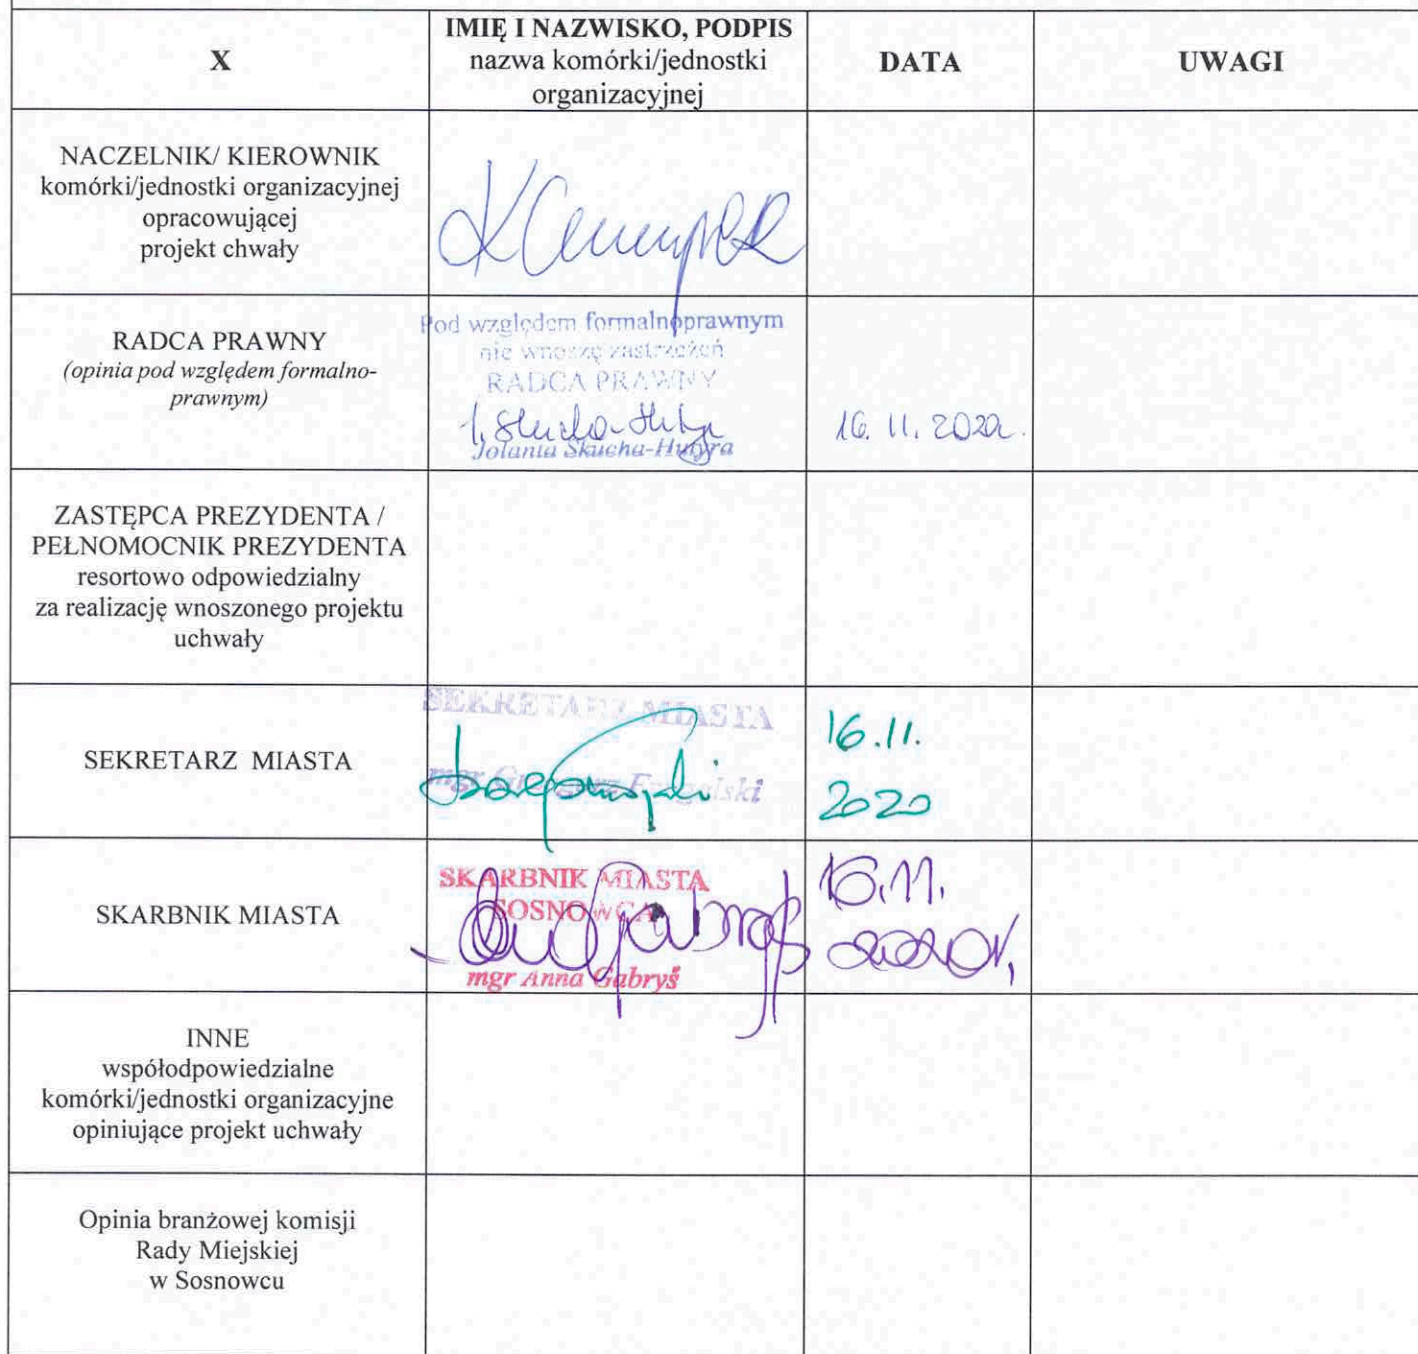 X
IMIĘ I NAZWISKO, PODPIS
nazwa komórki/jednostki
organizacyjnej
DATA
UWAGI
NACZELNIK/ KIEROWNIK
komórki/jednostki organizacyjnej
opracowującej
projekt chwały
RADCA PRAWNY
(opinia pod względem formalno-
prawnym)
Pod względem formalnoprawnym
nie wnoszę zastrzeżeń
RADCA PRAWNY
Jolanta Skucha-Hutyra
16. 11. 2020r.
ZASTĘPCA PREZYDENTA /
PEŁNOMOCNIK PREZYDENTA
resortowo odpowiedzialny
za realizację wnoszonego projektu
uchwały
SEKRETARZ MIASTA
SEKRETARZ MIASTA
mgr
16.11.
2020
SKARBNIK MIASTA
SKARBNIK MIASTA
SOSNOWCA
mgr Anna Gabryś
16.11.
2020r.
INNE
współodpowiedzialne
komórki/jednostki organizacyjne
opiniujące projekt uchwały
Opinia branżowej komisji
Rady Miejskiej
w Sosnowcu